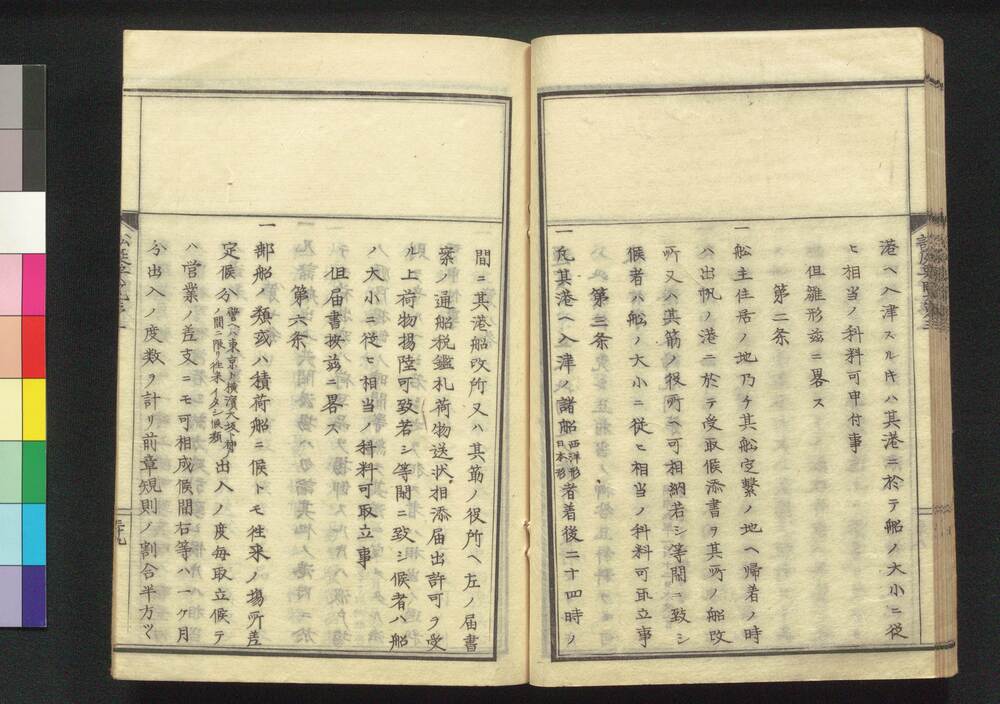 港ヘ入津スル片ハ其港ニ於テ船ノ大小ニ従
ヒ相当ノ科料可申付事
但雛形玆ニ畧ス
第二条
一船主住居ノ地乃チ其船定繋ノ地ヘ帰着ノ時
ハ出帆ノ港ニ於テ受取候添書ヲ其所ノ船改
所又ハ其筋ノ役所ヘ可相納若シ等閑ニ致シ
候者ハ船ノ大小ニ従ヒ相当ノ科料可取立事
第三条
一凡其港ヘ入津ノ諸船西洋形日本形者着後二十四時ノ
間ニ其港船改所又ハ其筋ノ役所ヘ左ノ届書
案ノ通船税鑑札荷物送状相添届出許可ヲ受
ル上荷物揚陸可致若シ等閑ニ致シ候者ハ船
ハ大小ニ従ヒ相当ノ科料可取立事
但届書按玆ニ畧ス
第六条
一郵船ノ類或ハ積荷船ニ候トモ往来ノ場所差
定候分譬ヘハ東京ト横濱大坂ト神戸ノ間ニ限リ往来イタシ候類ノ出入ノ度毎取立候テ
ハ営業ノ差支ニモ可相成候間右等ハ一ケ月
分出入ノ度数ヲ計リ前章規則ノ割合半方ツヽ